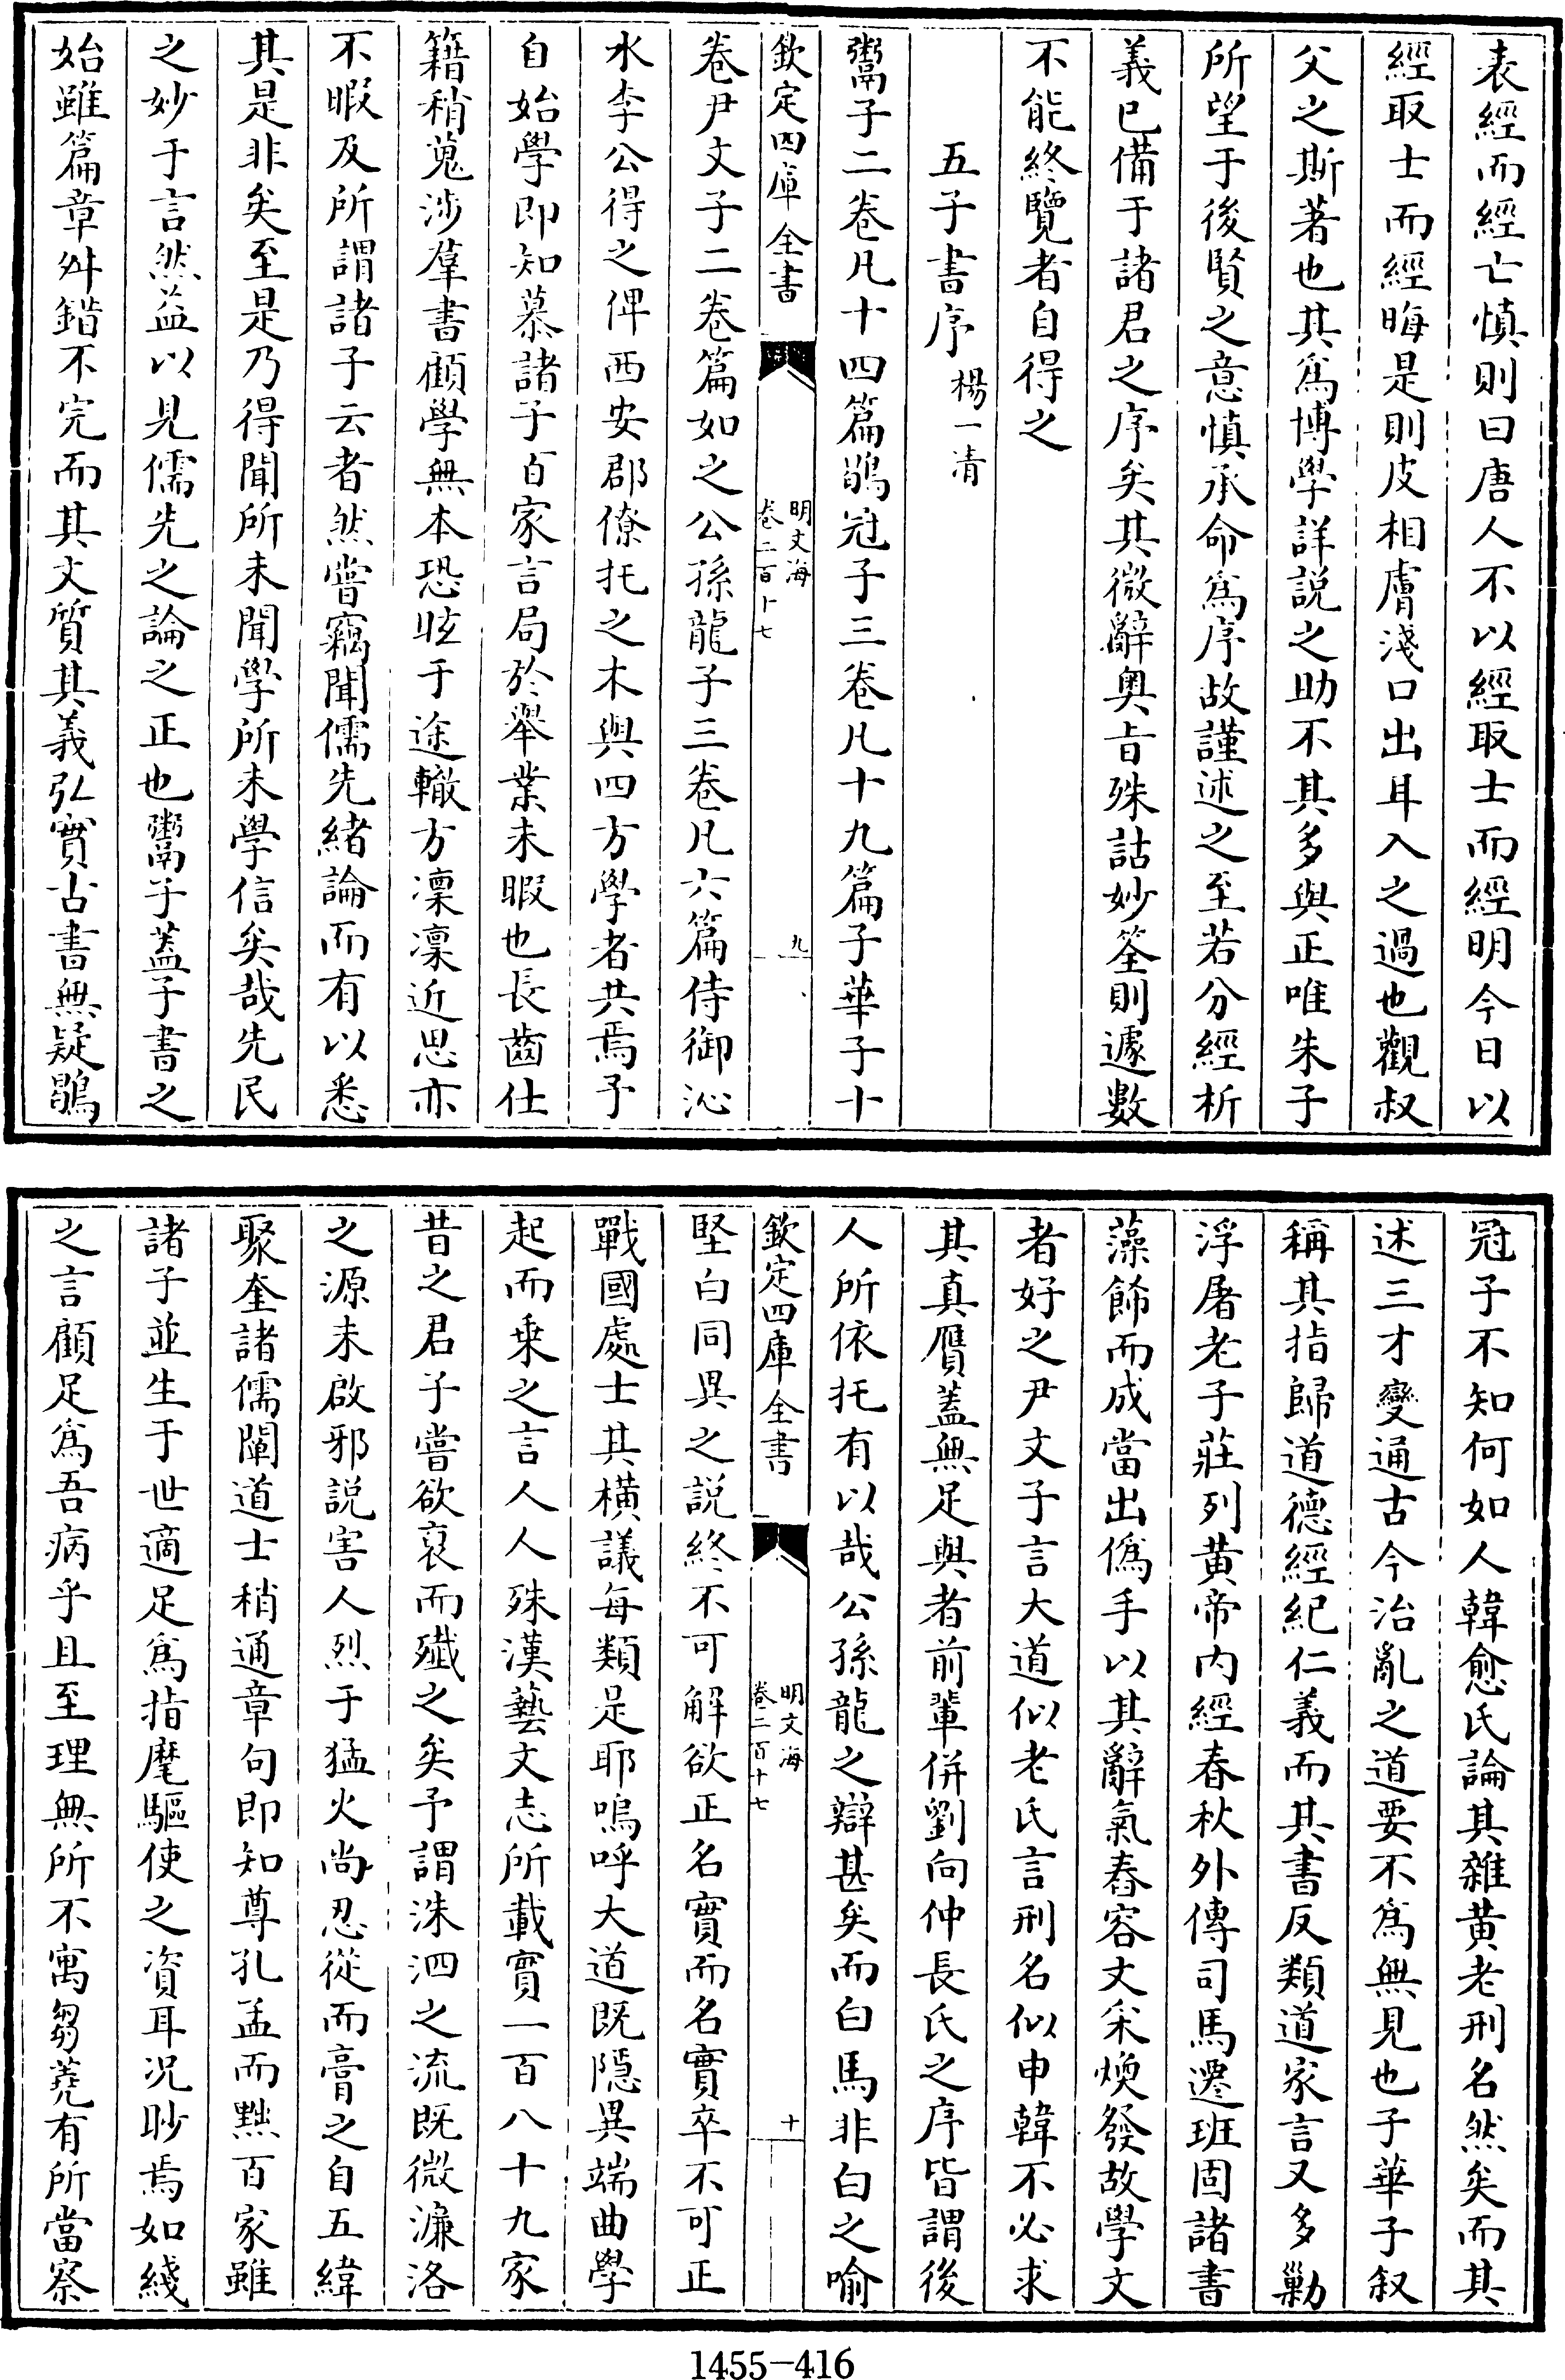 表經而經亡慎則曰唐人不以經取士而經明今日以
經取士而經晦是則皮相膚淺口出耳入之過也觀叔
父之斯著也其爲博學詳説之助不其多與正唯朱子
所望于後賢之意慎承命爲序故謹述之至若分經析
義已備于諸君之序矣其微辭奧旨殊詁妙筌則遽數
不能終覽者自得之
五子書序 楊一清
鬻子二卷凡十四篇鶡冠子三卷凡十九篇子華子十
欽定四庫全書
明文海
卷二百十七
九
卷尹文子二卷篇如之公孫龍子三卷凡六篇侍御沁
水李公得之俾西安郡僚托之木與四方學者共焉予
自始學即知慕諸子百家言局於舉業未暇也長齒仕
籍稍蒐涉羣書顧學無本恐眩于途轍方凜凜近思亦
不暇及所謂諸子云者然嘗竊聞儒先緒論而有以悉
其是非矣至是乃得聞所未聞學所未學信矣哉先民
之妙于言然益以見儒先之論之正也鬻子蓋子書之
始雖篇章舛錯不完而其文質其義弘實古書無疑鶡
冠子不知何如人韓愈氏論其雜黄老刑名然矣而其
述三才變通古今治亂之道要不爲無見也子華子叙
稱其指歸道德經紀仁義而其書反類道家言又多勦
浮屠老子莊列黄帝内經春秋外傳司馬遷班固諸書
藻飾而成當出僞手以其辭氣舂容文采煥發故學文
者好之尹文子言大道似老氏言刑名似申韓不必求
其真贋蓋無足與者前輩併劉向仲長氏之序皆謂後
人所依托有以哉公孫龍之辯甚矣而白馬非白之喻
欽定四庫全書
明文海
卷二百十七
十
堅白同異之説終不可解欲正名實而名實卒不可正
戰國處士其横議每類是耶嗚呼大道既隱異端曲學
起而乗之言人人殊漢藝文志所載實一百八十九家
昔之君子嘗欲裒而殱之矣予謂洙泗之流既微濂洛
之源未啟邪説害人烈于猛火尚忍從而膏之自五緯
聚奎諸儒闡道士稍通章句即知尊孔孟而黜百家雖
諸子並生于世適足爲指麾驅使之資耳况眇焉如綫
之言顧足爲吾病乎且至理無所不寓芻蕘有所當察
1455-416